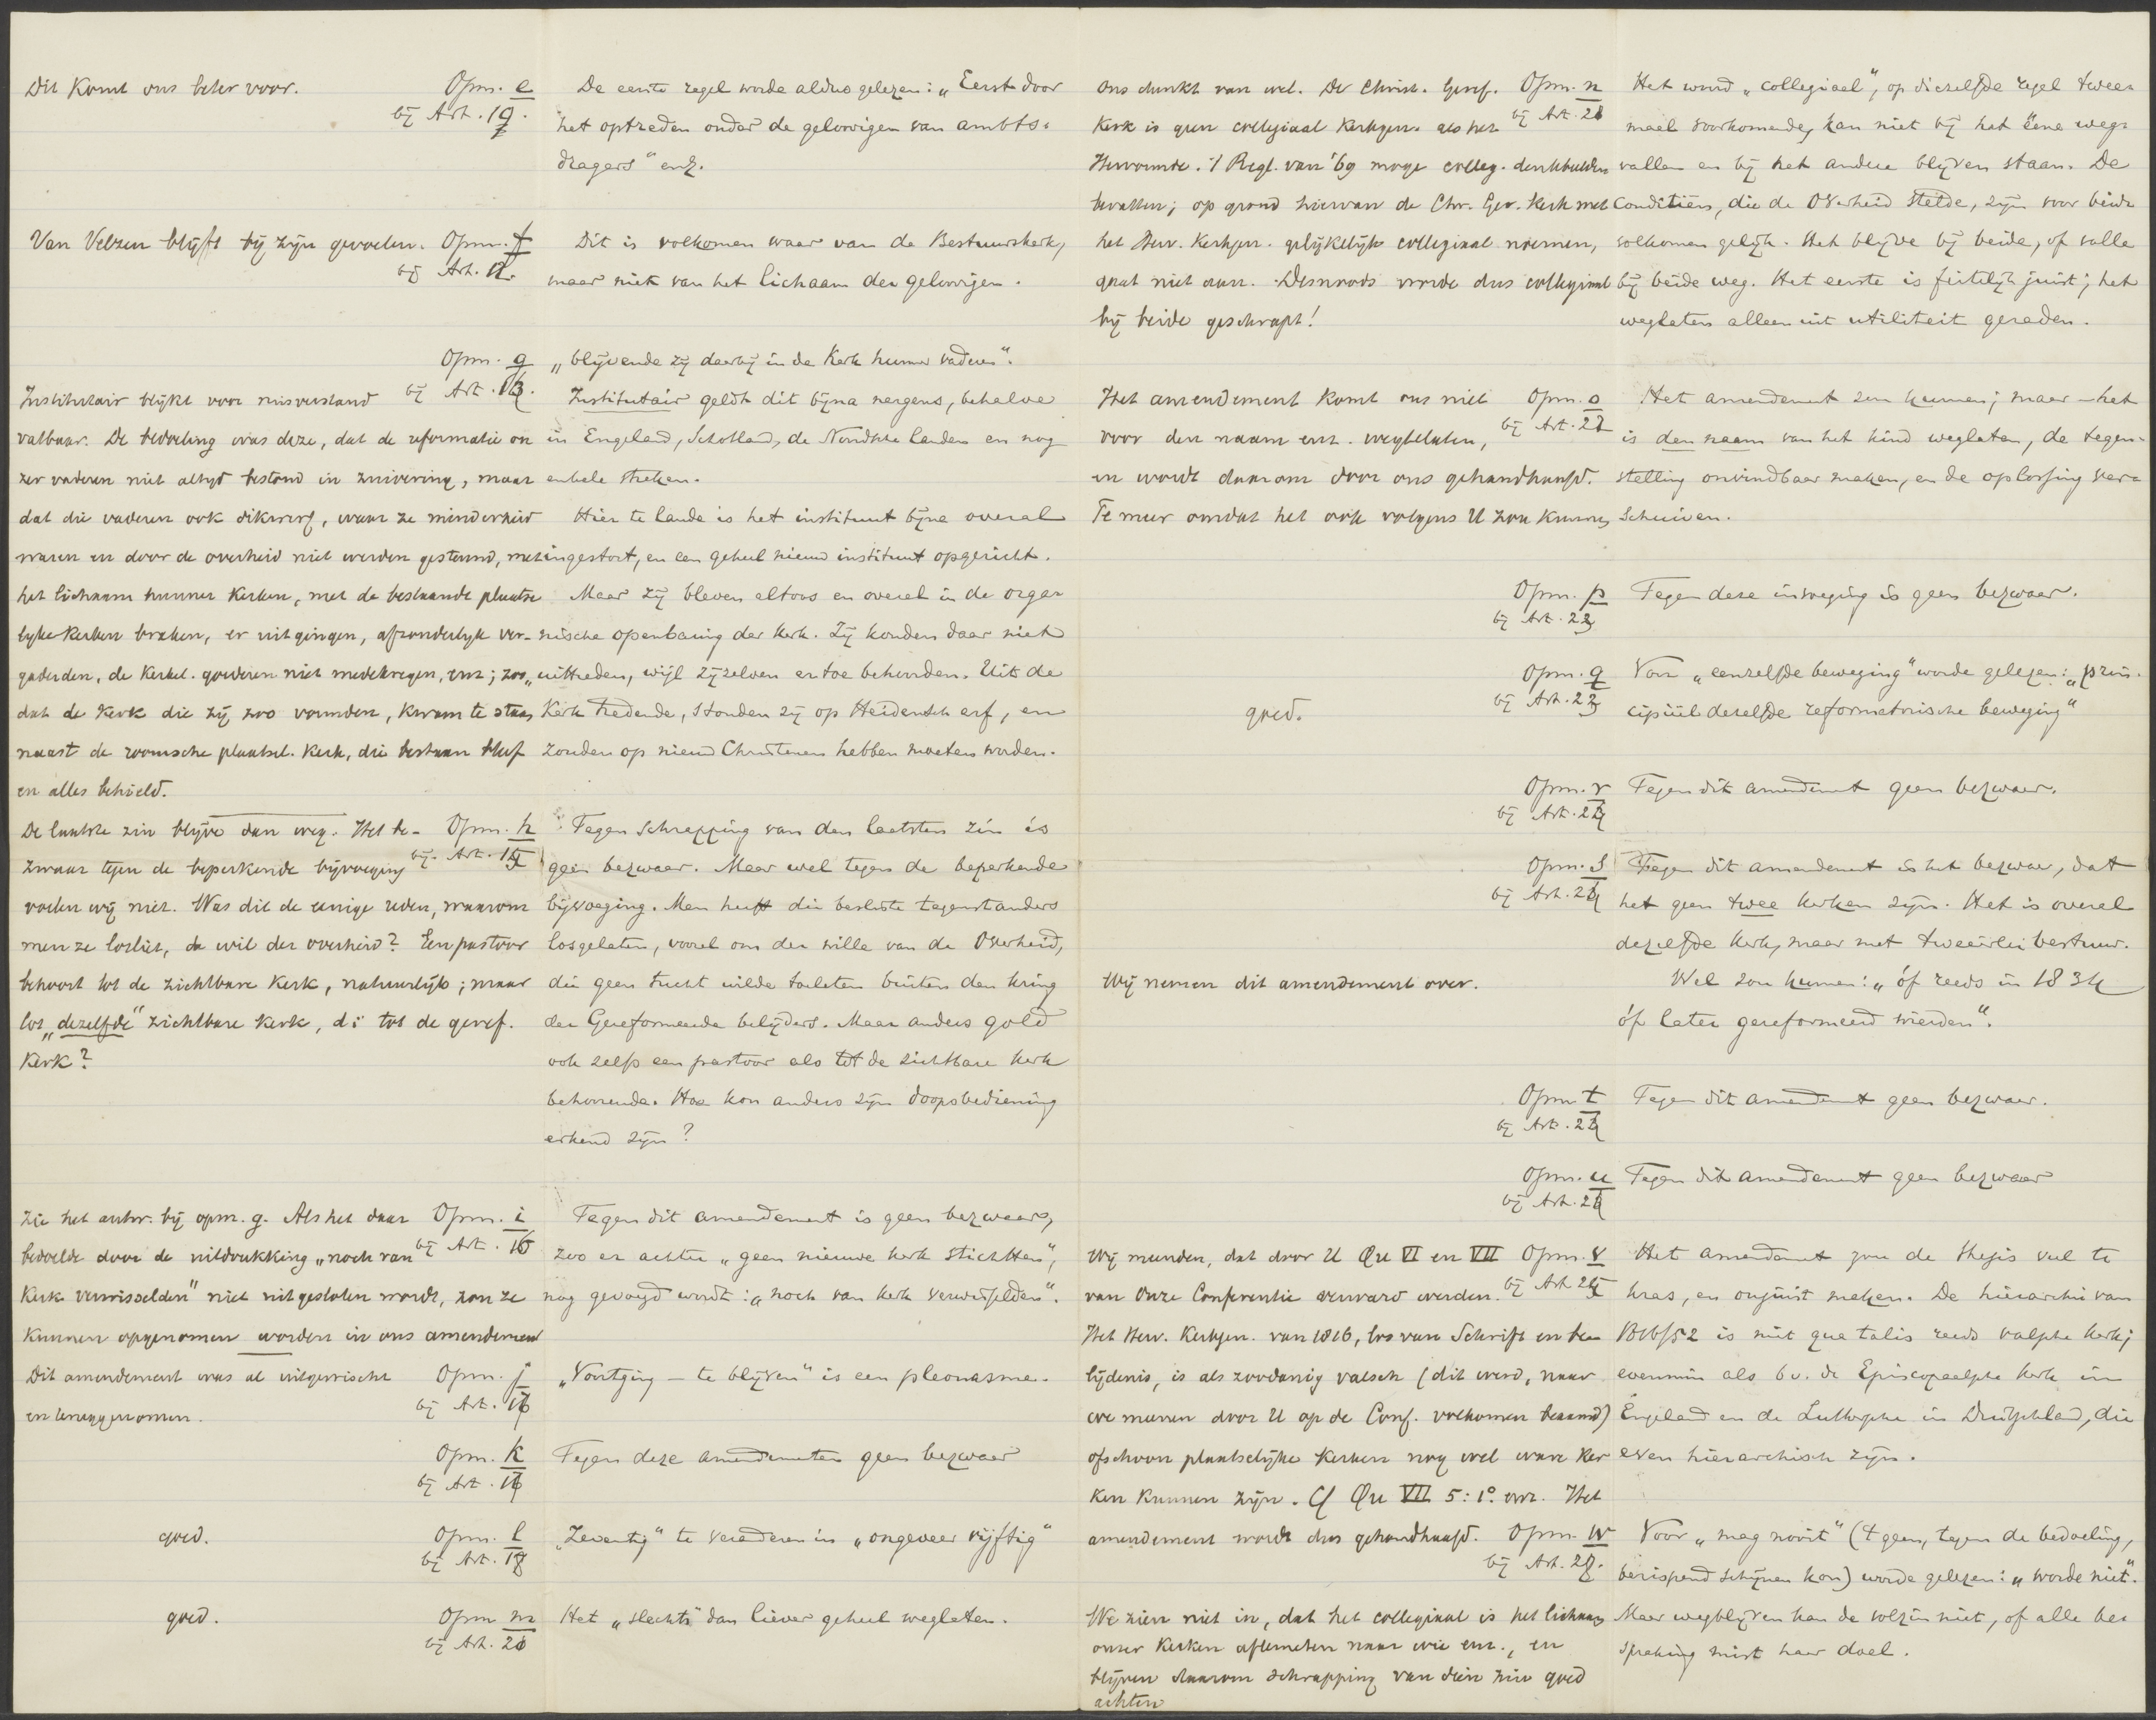 Dit komt ons beter voor.
Opm. e
bij Art. 19.
De eerste regel worde aldus gelezen: „Eerst door
het optreden onder de geloovigen van ambts=
dragers" enz.
Van Velzen blijft bij zijn gevoelen.
Opm. f
bij Art. 12.
Dit is volkomen waar van de Bestuurskerk,
maar niet van het lichaam der geloovigen.
Opm. g
bij Art. 13.
„blijvende zij daarbij in de Kerk hunner vaderen".
Institutair geldt dit bijna nergens, behalve
in Engeland, Schotland, de Noordsche landen en nog
enkele streken.
Hier te lande is het instituut bijna overal
ingestort, en een geheel nieuw instituut opgericht.
Maar zij bleven altoos en overal in de orga=
nische openbaring der Kerk. Zij konden daar niet
uittreden, wijl zijzelven er toe behoorden. Uit de
Kerk tredende, stonden zij op Heidensch erf, en
zouden op nieuw Christenen hebben moeten worden.
Institutair blijkt voor misverstand
vatbaar. De bedoeling was deze, dat de reformatie on
zer vaderen niet altijd bestond in zuivering, maar
dat die vaderen ook dikwerf, waar ze minderheid
waren en door de overheid niet werden gesteund, met
het lichaam hunner Kerken, met de bestaande plaatse
lijke Kerken braken, er uitgingen, afzonderlijk ver-
gaderden, de Kerkel. goederen niet medekregen, enz; zoo
dat de Kerk die zij zoo vormden, kwam te staan
naast de roomsche plaatsel. Kerk, die bestaan bleef
en alles behield.
De laatste zin blijve dan weg. Het be-
zwaar tegen de beperkende bijvoeging
voelen wij niet. Was dit de eenige reden, waarom
men ze losliet, de wil der overheid? Een pastoor
behoort tot de zichtbare Kerk, natuurlijk; maar
tot „dezelfde" zichtbare Kerk, d.i. tot de geref.
Kerk?
Opm. h
bij Art. 15
Tegen schrapping van den laatsten zin is
geen bezwaar. Maar wel tegen de beperkende
bijvoeging. Men heeft die besliste tegenstanders
losgelaten, vooral om der wille van de Overheid,
die geen tucht wilde toelaten buiten den kring
der Gereformeerde belijders. Maar anders gold
ook zelfs een pastoor als tot de zichtbare Kerk
behoorende. Hoe kon anders zijn doopsbediening
erkend zijn?
Zie het antw. bij opm. g. Als het daar
bedoelde door de uitdrukking „noch van
Kerk verwisselden" niet uitgesloten wordt, zou ze
kunnen opgenomen worden in ons amendement
Opm. i
bij Art. 16
Tegen dit amendement is geen bezwaar,
zoo er achter „geen nieuwe kerk stichtten",
nog gevoegd wordt: „noch van kerk verwisselden".
Dit amendement was al uitgewischt
en teruggenomen.
Opm. j
bij Art. 17
„Voortging — te blijven" is een pleonasme.
Opm. k
bij Art. 17
Tegen deze amendementen geen bezwaar
goed.
Opm. l
bij Art. 18
„Zeventig" te veranderen in „ongeveer vijftig"
goed.
Opm m
bij Art. 20
Het „slechts" dan liever geheel weglaten.
Ons dunkt van wel. De Christ. Geref.
Kerk is geen collegiaal Kerkgen. als het
Hervormde. 't Regl. van '69 moge colleg. denkbeelden
bevatten; op grond hiervan de Chr. Ger. Kerk met
het Herv. Kerkgen. gelijkelijk collegiaal noemen,
gaat niet aan. Desnoods worde dus collegiaal
bij beide geschrapt!
Opm. n
bij Art. 21
Het woord „collegiaal", op diezelfde regel twee=
maal voorkomende, kan niet bij het ééne weg=
vallen en bij het andere blijven staan. De
Conditiën, die de Overheid stelde, zijn voor beide
volkomen gelijk. Het blijve bij beide, of valle
bij beide weg. Het eerste is feitelijk juist; het
weglaten alleen uit utiliteit geraden.
Het amendement komt ons niet
voor den naam enz. weg te laten,
en wordt daarom door ons gehandhaafd.
Te meer omdat het ook volgens U zou kunnen
Opm. o
bij Art. 22
Het amendement zou kunnen; maar — het
is den naam van het kind weglaten, de tegen=
stelling onvindbaar maken, en de oplossing ver=
schuiven.
Opm. p
bij Art. 23
Tegen deze invoeging is geen bezwaar.
goed.
Opm. q
bij Art. 23
Voor „eenzelfde beweging" worde gelezen: „prin=
cipiëel dezelfde reformatorische beweging"
Opm. r
bij Art. 24
Tegen dit amendement geen bezwaar.
Wij nemen dit amendement over.
Opm. s
bij Art. 24
Tegen dit amendement is het bezwaar, dat
het geen twee kerken zijn. Het is overal
dezelfde kerk, maar met tweeërlei bestuur.
Wel zou kunnen: „óf reeds in 1834
óf later gereformeerd werden".
Opm. t
bij Art. 24
Tegen dit amendement geen bezwaar.
Opm. u
bij Art. 24
Tegen dit amendement geen bezwaar
Wij meenden, dat door U Qu VI en VII
van Onze Conferentie aanvaard werden.
Het Herv. Kerkgen. van 1816, los van Schrift en be=
lijdenis, is als zoodanig valsch (dit werd, naar
we meenen door U op de Conf. volkomen beaamd)
ofschoon plaatselijke Kerken nog wel ware Ker
ken kunnen zijn. Cf Qu VII 5: 1º. enz. Het
amendement wordt dus gehandhaafd.
Opm. v
bij Art 25
Het amendement zou de thesis veel te
kras, en onjuist maken. De hiërarchie van
1816/52 is niet qua talis reeds valsche kerk;
evenmin als b.v. de Episcopaalsche Kerk in
Engeland en de Luthersche in Duitschland, die
even hiërarchisch zijn.
We zien niet in, dat het collegiaal is het lichaam
onzer Kerken aftemeten naar wie enz., en
blijven daarom schrapping van dien zin goed
achten
Opm. w
bij Art. 28.
Voor „mag nooit" ('t geen, tegen de bedoeling,
berispend schijnen kon) worde gelezen: „worde niet".
Maar wegblijven kan de volzin niet, of alle be=
spreking mist haar doel.